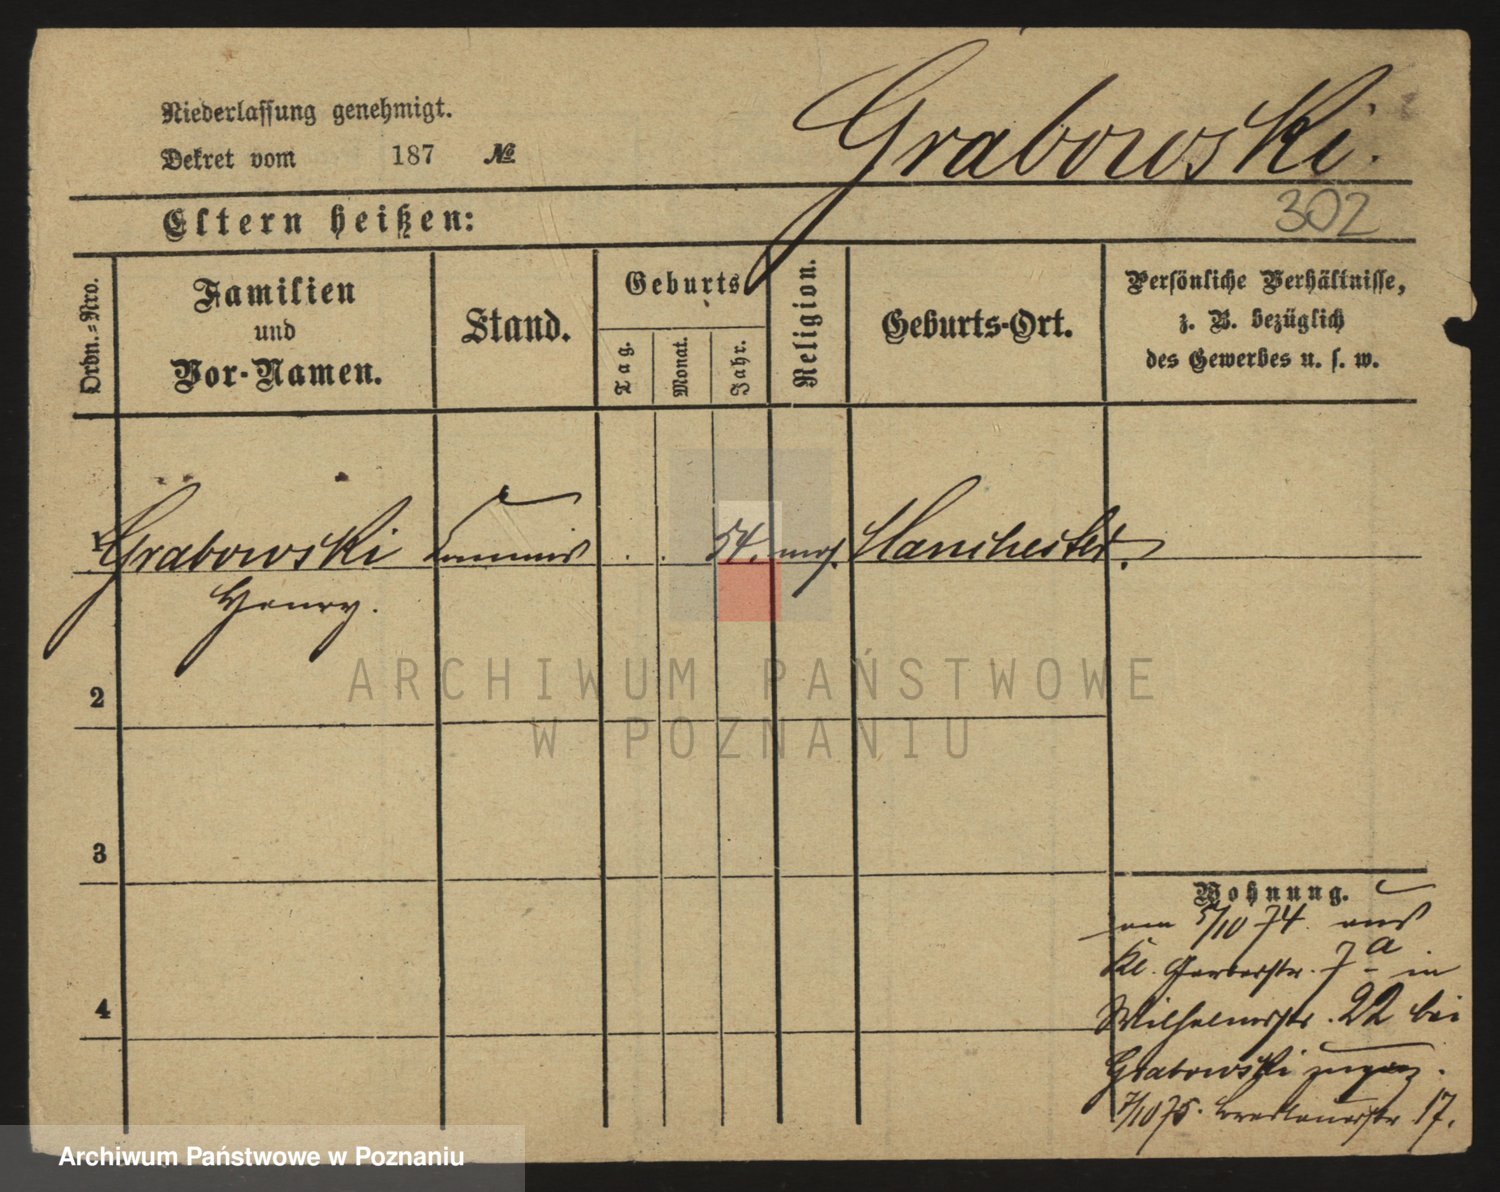 Niederlassung genehmigt.
Dekret vom 187 №
Grabowski.
302
Eltern heißen:
Ordn.=Nro.
Familien
und
Vor-Namen.
Stand.
Geburts
Tag.
Monat.
Jahr.
Religion.
Geburts-Ort.
Persönliche Verhältnisse,
z. B. bezüglich
des Gewerbes u. s. w.
1 Grabowski Commis . . 54. mos. Manchester.
Henry.
2
3
4
Wohnung.
am 5/10 74. aus
Kl. Gerberstr. 7a in
Wilhelmsstr. 22 bei
Grabowski zugez.
7/10 75. Breslauerstr. 17.
ARCHIWUM PAŃSTWOWE
W POZNANIU
Archiwum Państwowe w Poznaniu